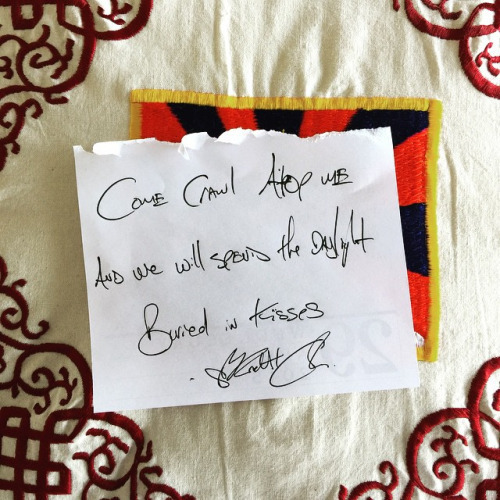 Come Crawl Atop me
And we will spend the Daylight
Buried in Kisses